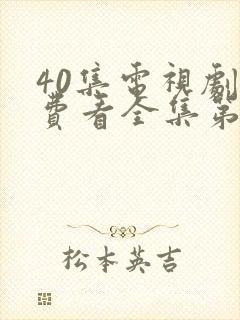 40集電視劇
費看全集第
松本英吉